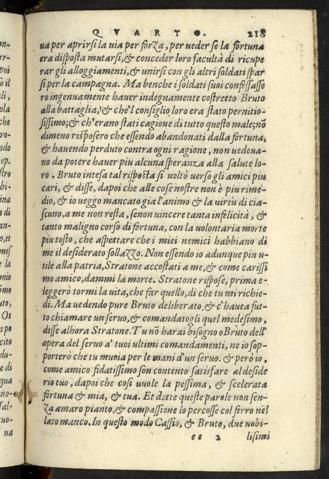 QVARTO. 218
ua per aprirsi la uia per forza, per ueder se la fortuna
era disposta mutarsi, & conceder loro facultà di ricupe
rar gli alloggiamenti, & unirsi con gli altri soldati spar
si per la campagna. Ma benche i soldati suoi confessasse
ro ingenuamente hauer indegnamente costretto Bruto
alla battaglia, & che'l consiglio loro era stato pernitio-
sissimo; & ch'erano stati cagione di tutto questo male; nõ
dimeno risposero che essendo abandonati dalla fortuna,
& hauendo perduto contra ogni ragione, non uedeua-
no da potere hauer piu alcuna speranza alla salute lo-
ro. Bruto intesa tal risposta si uoltò uerso gli amici piu
cari, & disse, dapoi che alle cose nostre non è piu rime-
dio, & io ueggo mancato gia l'animo & la uirtu di cia-
scuno, a me non resta, se non uincere tanta infelicità, &
tanto maligno corso di fortuna, con la uolontaria morte
piu tosto, che aspettare che i miei nemici habbiano di
me il desiderato sollazzo. Non essendo io adunque piu u-
tile alla patria, Stratone accostati a me, & come carissi
mo amico, dammi la morte. Stratone rispose, prima e-
leggerò tormi la uita, che far quello, di che tu mi richie-
di. Ma uedendo pure Bruto deliberato, & c'hauea fat-
to chiamare un seruo, & comandatogli quel medesimo,
disse alhora Stratone. Tu nõ harai bisogno o Bruto dell'
opera del seruo a' tuoi ultimi comandamenti, ne io sop-
porterò che tu muoia per le mani d'un seruo. & però io,
come amico fidatissimo son contento satisfare al deside
rio tuo, dapoi che cosi uuole la pessima, & scelerata
fortuna & mia, & tua. Et dette queste parole non sen-
za amaro pianto, & compassione lo percosse col ferro nel
lato manco. In questo modo Cassio, & Bruto, due nobi-
ee 2 lissimi